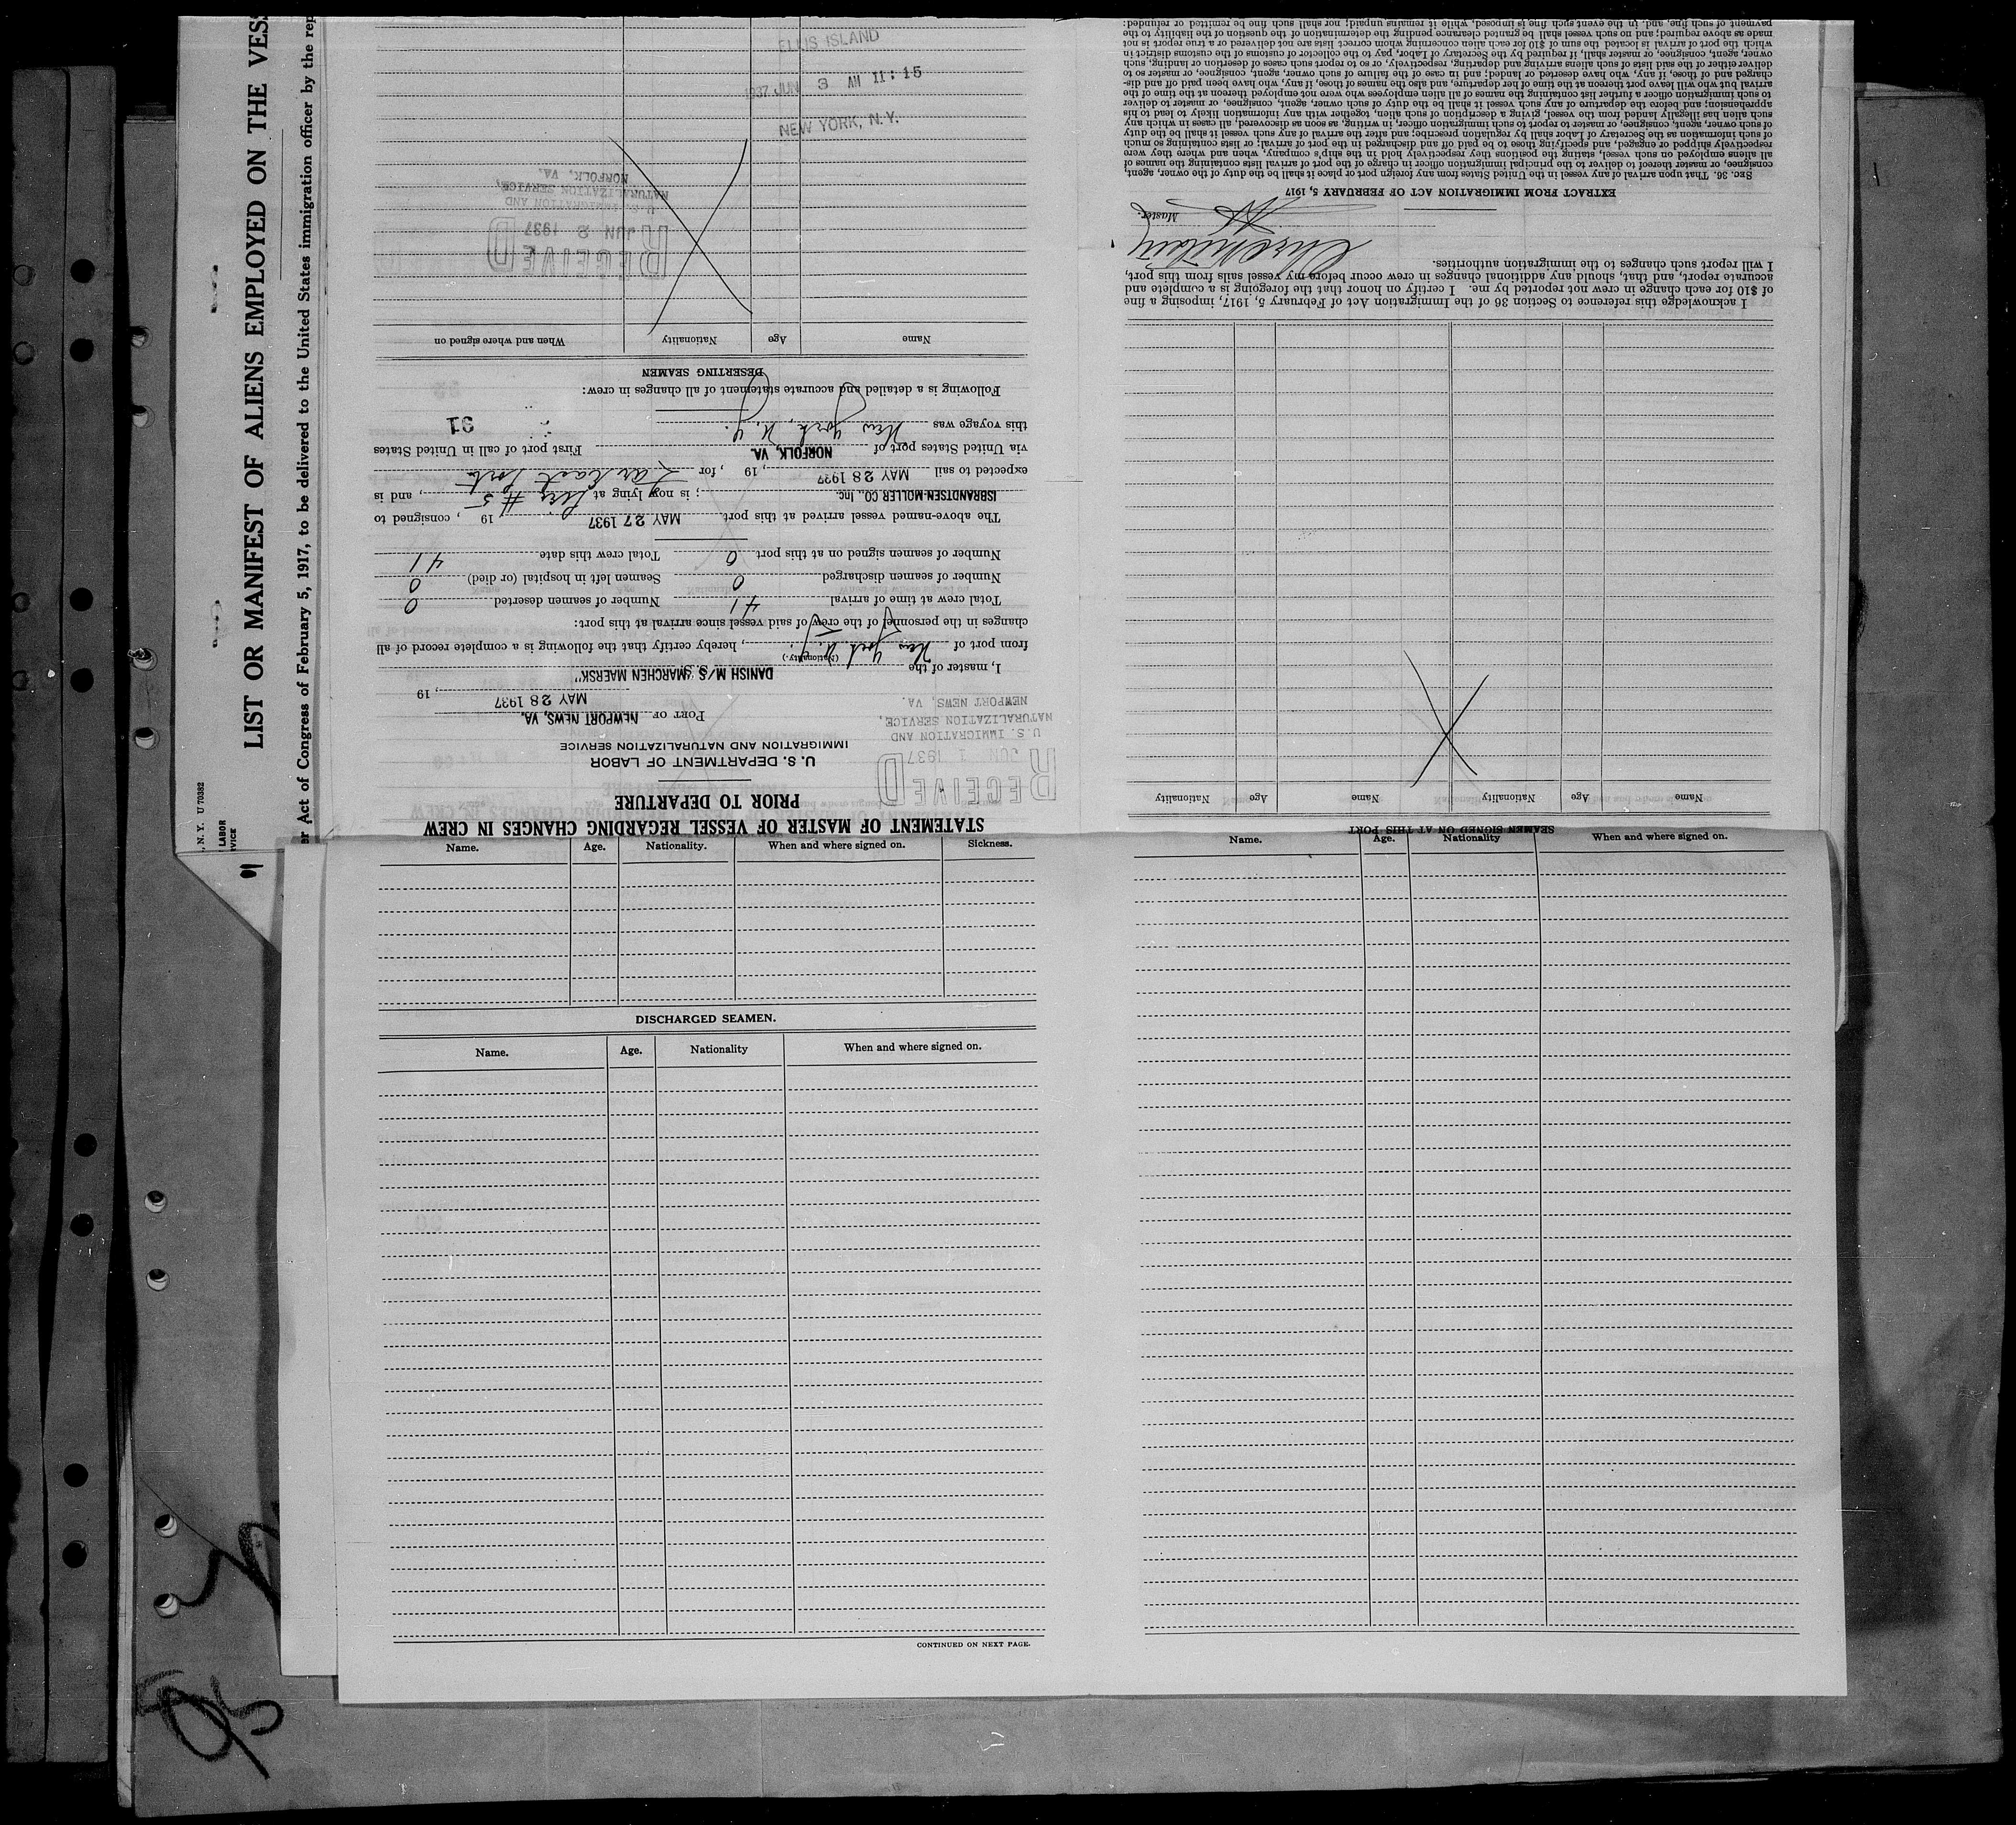 LIST OR MANIFEST OF ALIENS EMPLOYED ON THE VES
er Act of Congress of February 5, 1917, to be delivered to the United States immigration officer by the rep
, N. Y. U 70382
LABOR
VICE
STATEMENT OF MASTER OF VESSEL REGARDING CHANGES IN CREW
PRIOR TO DEPARTURE
U. S. DEPARTMENT OF LABOR
IMMIGRATION AND NATURALIZATION SERVICE
RECEIVED
JUN 1 1937
U. S. IMMIGRATION AND
NATURALIZATION SERVICE,
NEWPORT NEWS, VA.
PORT OF NEWPORT NEWS, VA.
MAY 28 1937, 19
I, master of the DANISH M/S "MARCHEN MAERSK"
(Nationality.)
from port of New York N.Y., hereby certify that the following is a complete record of all
changes in the personnel of the crew of said vessel since arrival at this port:
Total crew at time of arrival 41 Number of seamen deserted 0
Number of seamen discharged 0 Seamen left in hospital (or died) 0
Number of seamen signed on at this port 0 Total crew this date 41
The above-named vessel arrived at this port MAY 27 1937, 19 , consigned to
ISBRANDTSEN-MOLLER CO., Inc. ; is now lying at Pier #5, and is
expected to sail MAY 28 1937, 19 , for Far East Ports
via United States port of NORFOLK, VA. First port of call in United States
this voyage was New York, N.Y.
91
Following is a detailed and accurate statement of all changes in crew:
DESERTING SEAMEN
Name Age Nationality When and where signed on
RECEIVED
JUN 3 1937
U. S. IMMIGRATION AND
NATURALIZATION SERVICE,
NORFOLK, VA.
ELLIS ISLAND
1937 JUN 3 AM 11:15
NEW YORK, N.Y.
SEAMEN SIGNED ON AT THIS PORT
Name Age Nationality Name Age Nationality
I acknowledge this reference to Section 36 of the Immigration Act of February 5, 1917, imposing a fine
of $10 for each change in crew not reported by me. I certify on honor that the foregoing is a complete and
accurate report, and that, should any additional changes in crew occur before my vessel sails from this port,
I will report such changes to the immigration authorities.
Master.
EXTRACT FROM IMMIGRATION ACT OF FEBRUARY 5, 1917
SEC. 36. That upon arrival of any vessel in the United States from any foreign port or place it shall be the duty of the owner, agent,
consignee, or master thereof to deliver to the principal immigration officer in charge of the port of arrival lists containing the names of
all aliens employed on such vessel, stating the positions they respectively hold in the ship's company, when and where they were
respectively shipped or engaged, and specifying those to be paid off and discharged in the port of arrival; or lists containing so much
of such information as the Secretary of Labor shall by regulation prescribe; and after the arrival of any such vessel it shall be the duty
of such owner, agent, consignee, or master to report to such immigration officer, in writing, as soon as discovered, all cases in which any
such alien has illegally landed from the vessel, giving a description of such alien, together with any information likely to lead to his
apprehension; and before the departure of any such vessel it shall be the duty of such owner, agent, consignee, or master to deliver
to such immigration officer a further list containing the names of all alien employees who were not employed thereon at the time of the
arrival but who will leave port thereon at the time of her departure, and also the names of those, if any, who have been paid off and dis-
charged and of those, if any, who have deserted or landed; and in case of the failure of such owner, agent, consignee, or master so to
deliver either of the said lists of such aliens arriving and departing, respectively, or so to report such cases of desertion or landing, such
owner, agent, consignee, or master shall, if required by the Secretary of Labor, pay to the collector of customs of the customs district in
which the port of arrival is located the sum of $10 for each alien concerning whom correct lists are not delivered or a true report is not
made as above required; and no such vessel shall be granted clearance pending the determination of the question of the liability to the
payment of such fine, and, in the event such fine is imposed, while it remains unpaid; nor shall such fine be remitted or refunded:
Name. Age. Nationality. When and where signed on. Sickness.
DISCHARGED SEAMEN.
Name. Age. Nationality When and where signed on.
CONTINUED ON NEXT PAGE.
Name. Age. Nationality When and where signed on.
95